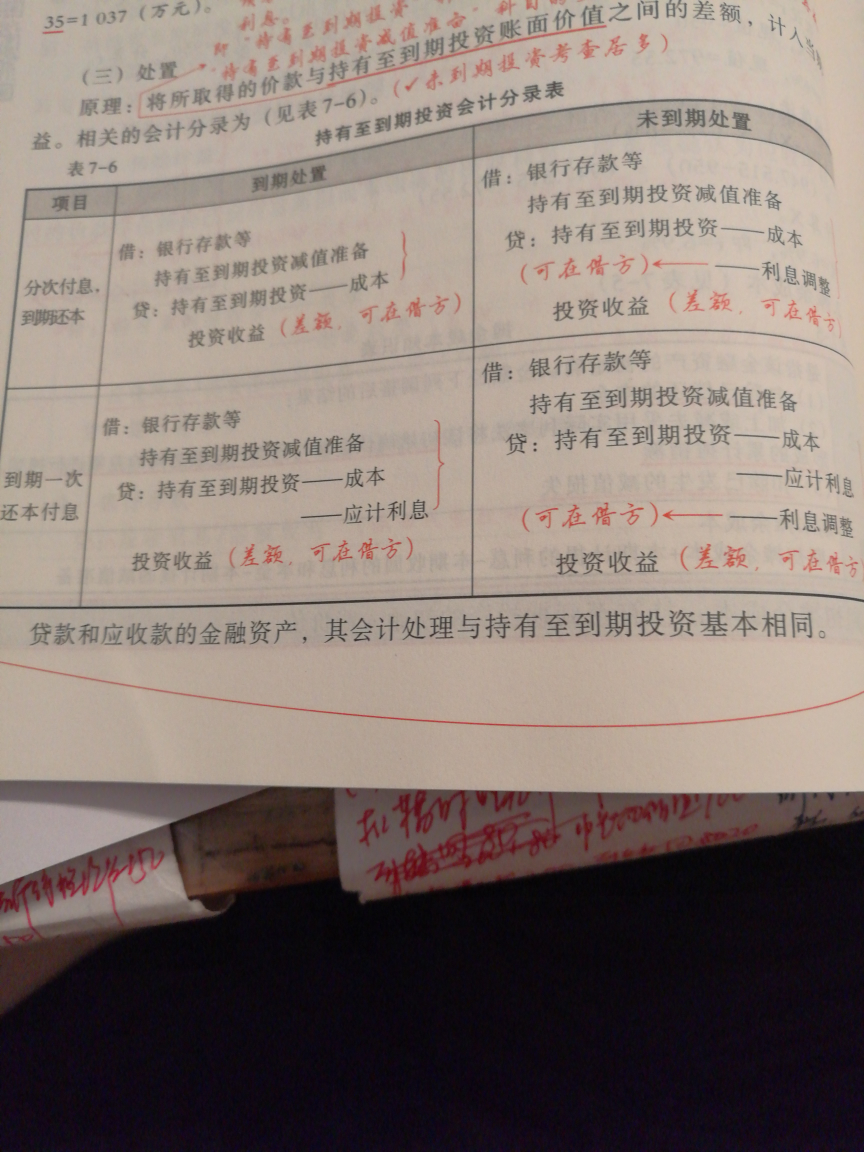 35=1 037（万元）。
利息。
即“持有至到期投资
“持有至到期投资减值准备”科目的
（三）处置
原理：将所取得的价款与持有至到期投资账面价值之间的差额，计入当期
益。相关的会计分录为（见表7-6）。（✓未到期投资考查居多）
表7-6
持有至到期投资会计分录表
项目
到期处置
未到期处置
分次付息，
到期还本
借：银行存款等
持有至到期投资减值准备
贷：持有至到期投资——成本
投资收益（差额，可在借方）
借：银行存款等
持有至到期投资减值准备
贷：持有至到期投资——成本
（可在借方）←——利息调整
投资收益（差额，可在借方）
到期一次
还本付息
借：银行存款等
持有至到期投资减值准备
贷：持有至到期投资——成本
——应计利息
投资收益（差额，可在借方）
借：银行存款等
持有至到期投资减值准备
贷：持有至到期投资——成本
——应计利息
（可在借方）←——利息调整
投资收益（差额，可在借方）
贷款和应收款的金融资产，其会计处理与持有至到期投资基本相同。